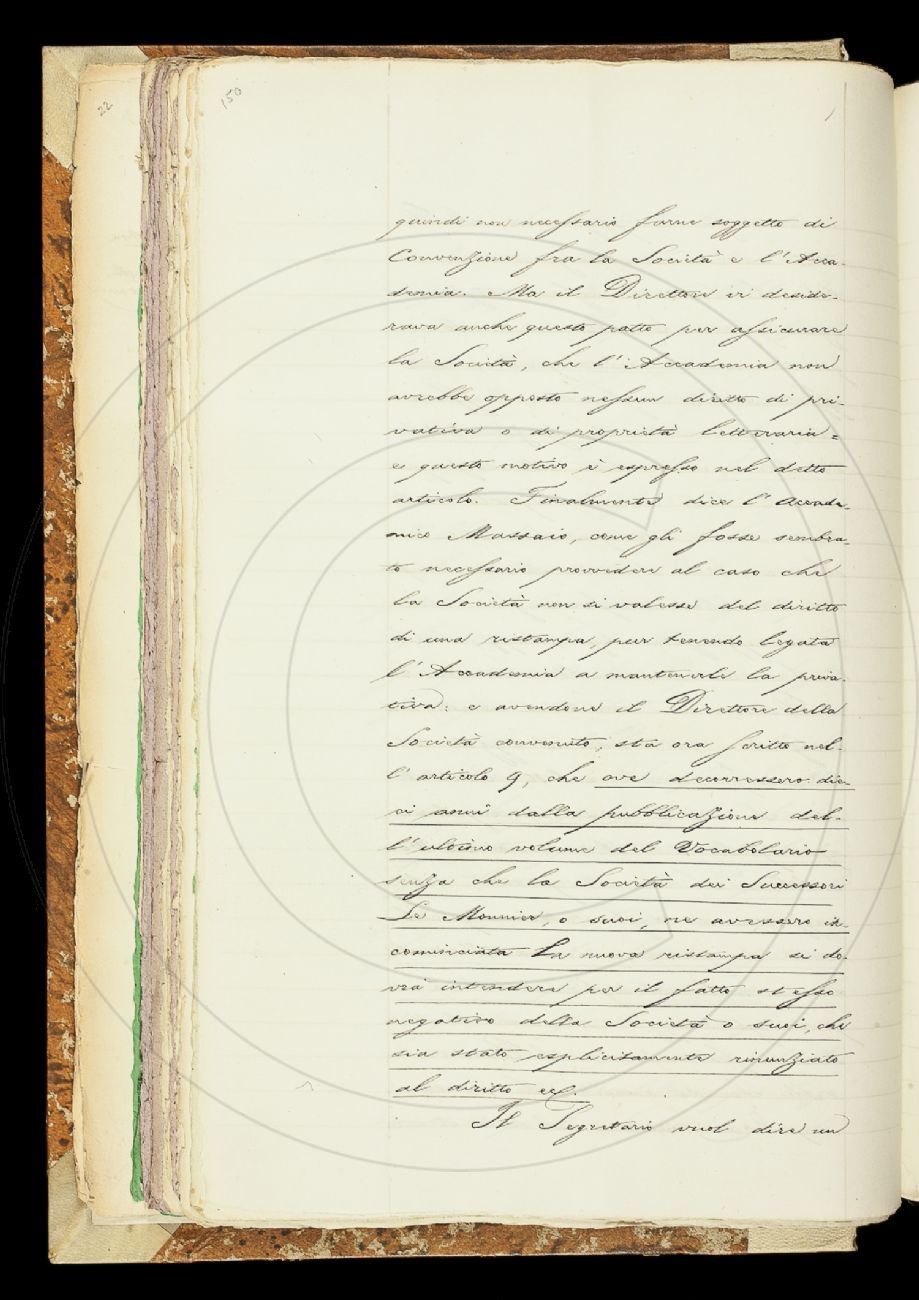 22
150
quindi non necessario farne soggetto di
Convenzione fra la Società e l'Acca-
demia. Ma il Direttore vi deside-
rava anche questo patto per assicurare
la Società, che l'Accademia non
avrebbe opposto nessun diritto di pri-
vativa o di proprietà letteraria =
e questo motivo è espresso nel detto
articolo. Finalmente dice l'Accade-
mico Massaio, come gli fosse sembra-
to necessario provvedere al caso che
la Società non si valesse del diritto
di una ristampa, pur tenendo legata
l'Accademia a mantenerle la priva-
tiva: e avendone il Direttore della
Società convenuto, sta ora scritto nel-
l'articolo 9, che ove decorressero die-
ci anni dalla pubblicazione del-
l'ultimo volume del Vocabolario
senza che la Società dei Successori
Le Monnier, o suoi, ne avessero in-
cominciata la nuova ristampa si do-
vrà intendere per il fatto stesso
negativo della Società o suoi, che
sia stato esplicitamente rinunziato
al diritto ecc.
Il Segretario vuol dire un